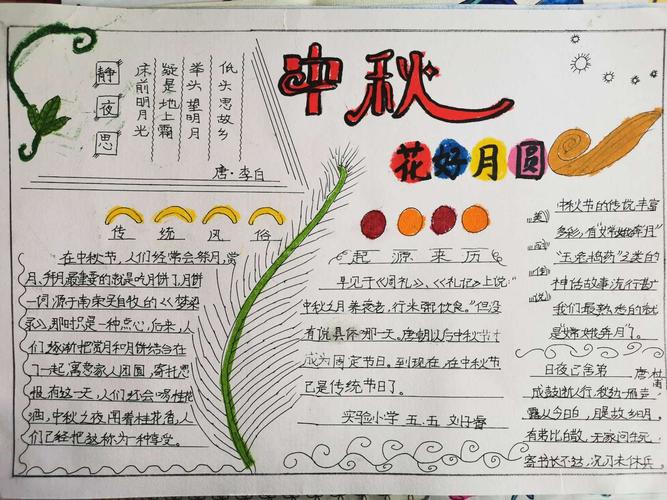 静夜思
床前明月光
疑是地上霜
举头望明月
低头思故乡
唐·李白
中秋
花好月圆
传统风俗
在中秋节,人们经常会祭月,赏
月、拜月最重要的就是吃月饼了,月饼
一词源于南宋吴自牧的《梦梁
录》,那时只是一种点心,后来,人
们逐渐把赏月和月饼结合在
了一起,寓意家人团圆,寄托思
有这一天,人们还会喝桂花
酒,中秋之夜,闻着桂花香,人
们已经把这称为一种享受。
起源来历
早见于《周礼》、《礼记》上说:
中秋之月养衰老,行米粥饮食。”但没
有说具体哪一天。唐朝以后中秋节才
成为固定节日。到现在,在中秋节
已是传统节日了。
实验小学 五.五 刘子睿
美丽传说
中秋节的传说丰富
多彩,有“嫦娥奔月”
“玉兔捣药”之类的
神话故事流行甚广
我们最熟悉的就
是“嫦娥奔月”了。
月夜忆舍弟 唐杜甫
戍鼓断人行,秋边一雁声
露从今日白,月是故乡明。
有弟皆分散,无家问生死
寄书长不达,况乃未休兵。